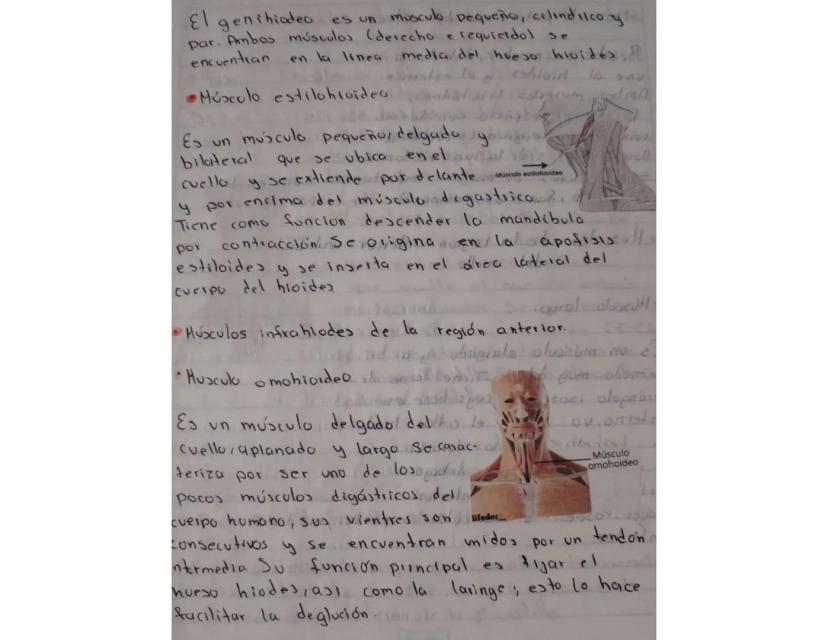 El genihiodeo es un musculo pequeño, cilindrico y
par. Ambos músculos (derecho e izquierdo) se
encuentran en la linea media del hueso hioides
Músculo estilohioideo.
Es un músculo pequeño, delgado y
bilateral que se ubica en el
cuello y se extiende por delante
Músculo estilohioideo
y por encima del músculo digastrico.
Tiene como funcion descender la mandibula
por contracción. Se origina en la apofisis
estiloides y se inserta en el área lateral del
cuerpo del hioides
Músculos infrahiodes de la región anterior.
Musculo omohioideo
Es un músculo delgado del
cuello, aplanado y largo se carac-
teriza por ser uno de los
Músculo
omohoideo
pocos músculos digástricos del
cuerpo humano, sus vientres son
lifeder
consecutivos y se encuentran unidos por un tendón
ntermedia Su función principal es fijar el
hueso hiodes, asi como la laringe, esto lo hace
facilitar la deglución.